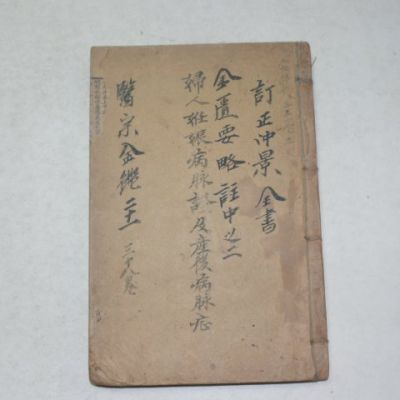 訂正冲景全書
金匱要略註中之二
婦人姙娠病脉註及產後病脉症
醫宗金鑑
三十八卷